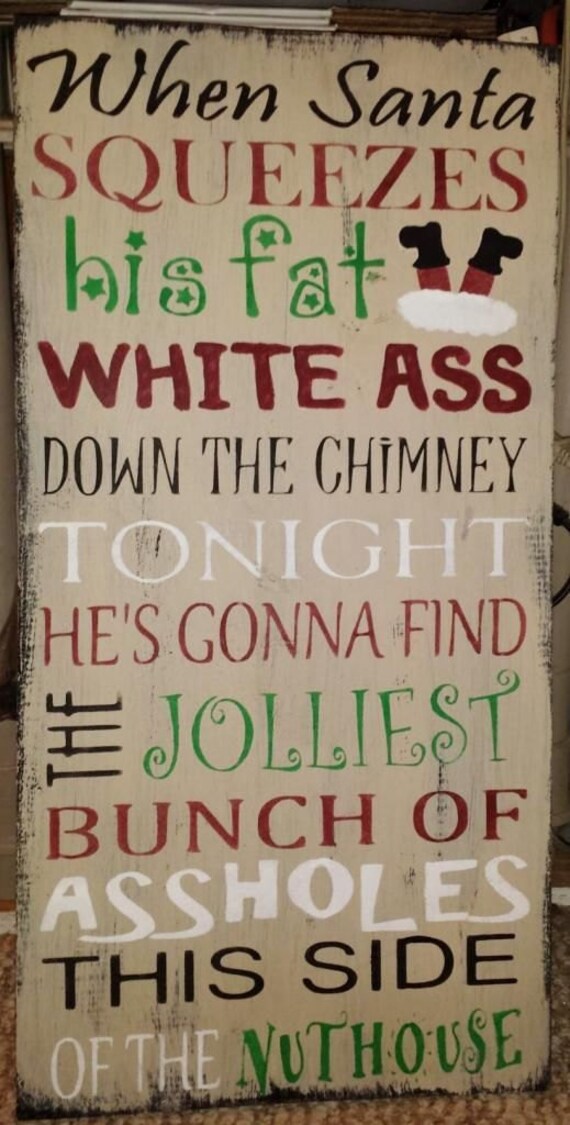 When Santa
SQUEEZES
his fat
WHITE ASS
DOWN THE CHiMNEY
TONIGHT
HE'S GONNA FIND
THE JOLLIEST
BUNCH OF
ASSHOLES
THIS SIDE
OF THE NUTHOUSE